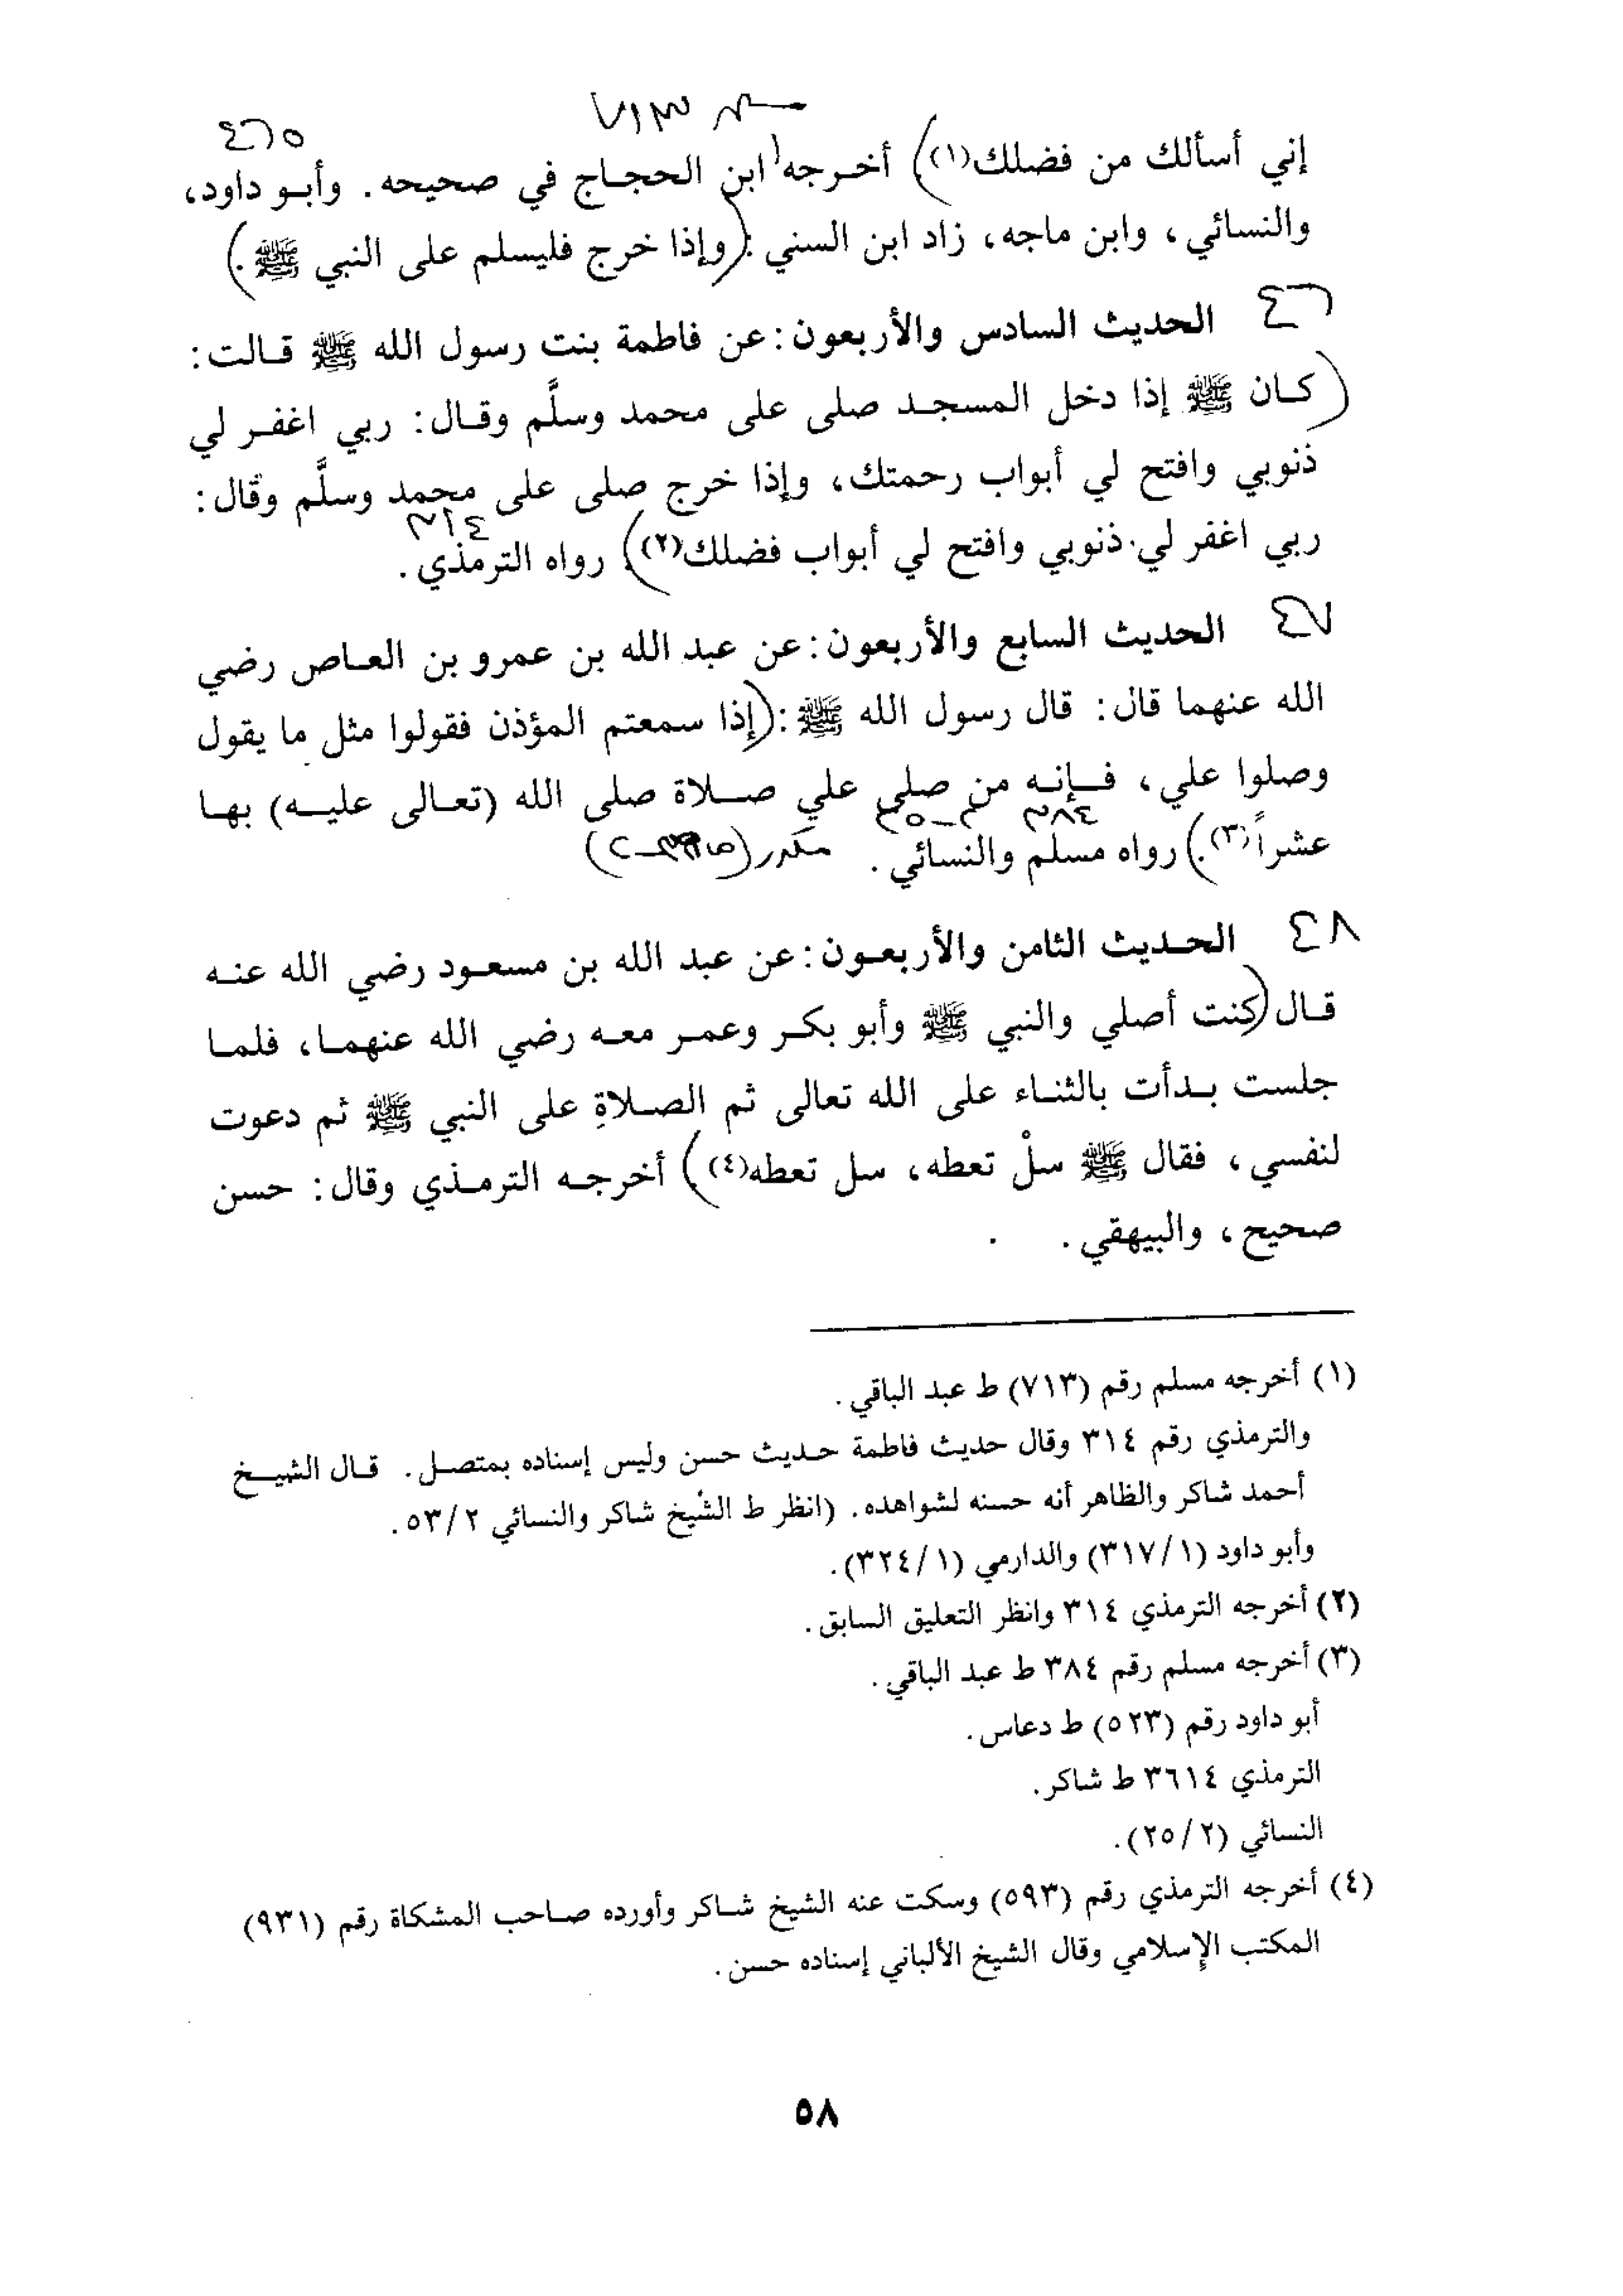 ٤٦٥
إني أسألك من فضلك(١)) أخرجه ابن الحجاج في صحيحه. وأبو داود،
والنسائي، وابن ماجه، زاد ابن السني: (وإذا خرج فليسلم على النبي ﷺ.)
٤٦ الحديث السادس والأربعون: عن فاطمة بنت رسول الله ﷺ قالت:
(كان ﷺ إذا دخل المسجد صلى على محمد وسلَّم وقال: ربي اغفر لي
ذنوبي وافتح لي أبواب رحمتك، وإذا خرج صلى على محمد وسلَّم وقال:
٣١٤
ربي اغفر لي ذنوبي وافتح لي أبواب فضلك(٢)) رواه الترمذي.
٤٧ الحديث السابع والأربعون: عن عبد الله بن عمرو بن العاص رضي
الله عنهما قال: قال رسول الله ﷺ: (إذا سمعتم المؤذن فقولوا مثل ما يقول
وصلوا علي، فإنه من صلى علي صلاة صلى الله (تعالى عليه) بها
٣٨٤
عشراً(٣).) رواه مسلم والنسائي.
٤٨ الحديث الثامن والأربعون: عن عبد الله بن مسعود رضي الله عنه
قال (كنت أصلي والنبي ﷺ وأبو بكر وعمر معه رضي الله عنهما، فلما
جلست بدأت بالثناء على الله تعالى ثم الصلاةِ على النبي ﷺ ثم دعوت
لنفسي، فقال ﷺ سلْ تعطه، سل تعطه(٤)) أخرجه الترمذي وقال: حسن
صحيح، والبيهقي.
(١) أخرجه مسلم رقم (٧١٣) ط عبد الباقي.
والترمذي رقم ٣١٤ وقال حديث فاطمة حديث حسن وليس إسناده بمتصل. قال الشيخ
أحمد شاكر والظاهر أنه حسنه لشواهده. (انظر ط الشيخ شاكر والنسائي ٥٣/٢.
وأبو داود (٣١٧/١) والدارمي (٣٢٤/١).
(٢) أخرجه الترمذي ٣١٤ وانظر التعليق السابق.
(٣) أخرجه مسلم رقم ٣٨٤ ط عبد الباقي.
أبو داود رقم (٥٢٣) ط دعاس.
الترمذي ٣٦١٤ ط شاكر.
النسائي (٢٥/٢).
(٤) أخرجه الترمذي رقم (٥٩٣) وسكت عنه الشيخ شاكر وأورده صاحب المشكاة رقم (٩٣١)
المكتب الإسلامي وقال الشيخ الألباني إسناده حسن.
٥٨